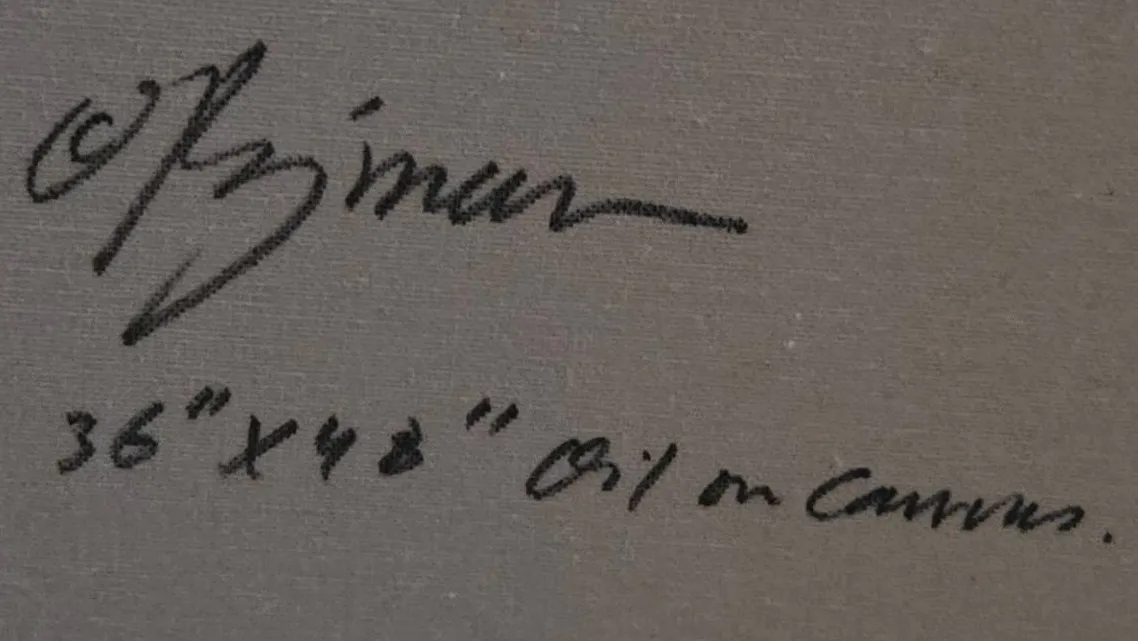 ©
36" x 48" Oil on Canvas.